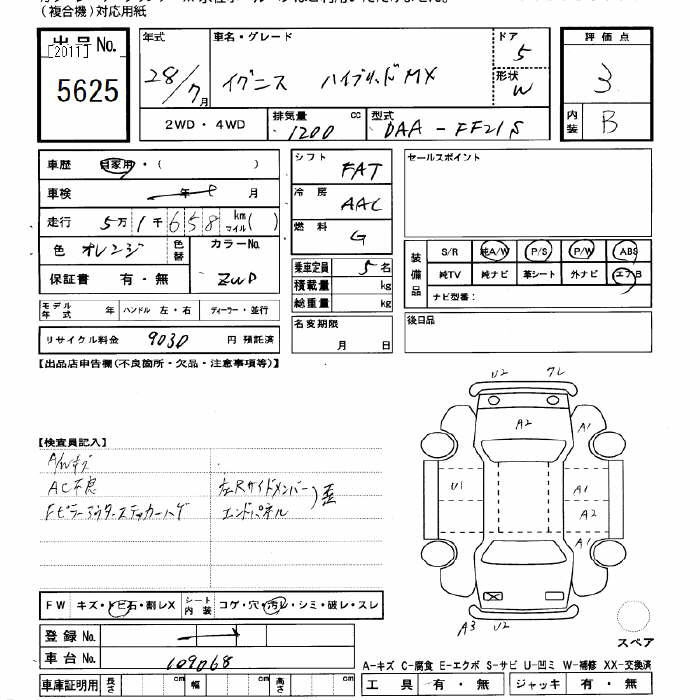 (複合機)対応用紙
出品 No.
[2011]
5625
年式 28/7月
車名・グレード イグニス ハイブリッドMX
ドア 5
形状 W
評価点 3
内装 B
2WD・4WD
排気量 1200 cc
型式 DAA-FF21S
車歴 自家用・( )
車検 年 月
走行 5万1千658 km マイル( )
色 オレンジ 色替
カラーNo. ZWD
保証書 有・無
シフト FAT
冷房 AAC
燃料 G
乗車定員 5名
積載量 kg
総重量 kg
セールスポイント
装備品
S/R 純A/W P/S P/W ABS
純TV 純ナビ 革シート 外ナビ エアB
ナビ型番:
モデル年式 年 ハンドル 左・右 ディーラー・並行
リサイクル料金 9030 円 預託済
名変期限 月 日
後日品
【出品店申告欄(不良箇所・欠品・注意事項等)】
【検査員記入】
A/Wキズ
AC不良 左Rサイドメンバー
Fピラーアウターステッカーハゲ エンドパネル )歪
U2 ワレ
A2 A1
U1 A1
A2
A1
A3 U2
スペア
FW キズ・トビ石・割レX シート内装 コゲ・穴・汚レ・シミ・破レ・スレ
登録 No.
車台 No. 109068
車庫証明用 長さ cm 幅 cm 高さ cm
A-キズ C-腐食 E-エクボ S-サビ U-凹ミ W-補修 XX-交換済
工具 有・無 ジャッキ 有・無